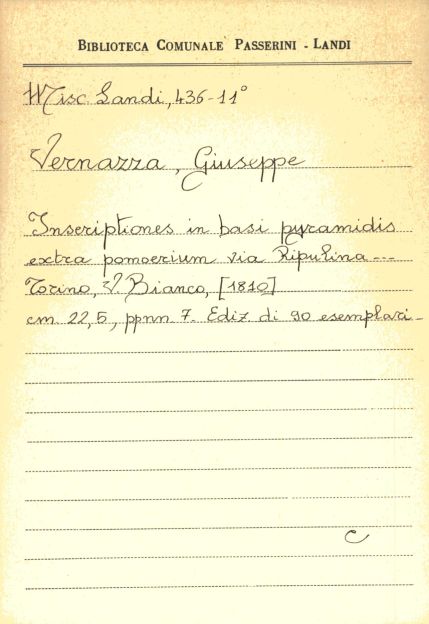 BIBLIOTECA COMUNALE PASSERINI - LANDI
Misc. Landi, 436-11°
Vernazza, Giuseppe
Inscriptiones in basi pyramidis
extra pomoerium via Ripulina ---
Torino, V. Bianco, [1810]
cm. 22,5, ppnn. 7. Ediz. di 90 esemplari-
C